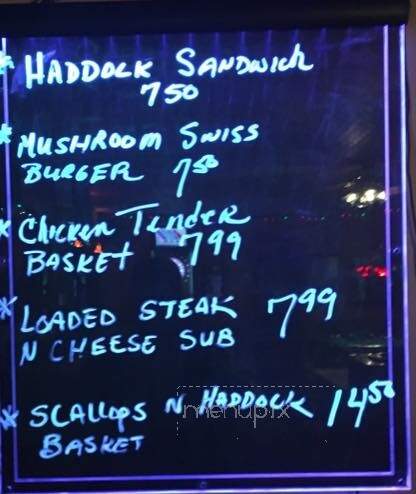 * HADDOCK SANDWICH
750
* MUSHROOM SWISS
BURGER 750
* CHICKEN TENDER
BASKET 799
* LOADED STEAK 799
N CHEESE SUB
* SCALLOPS N HADDOCK 1450
BASKET
menupix